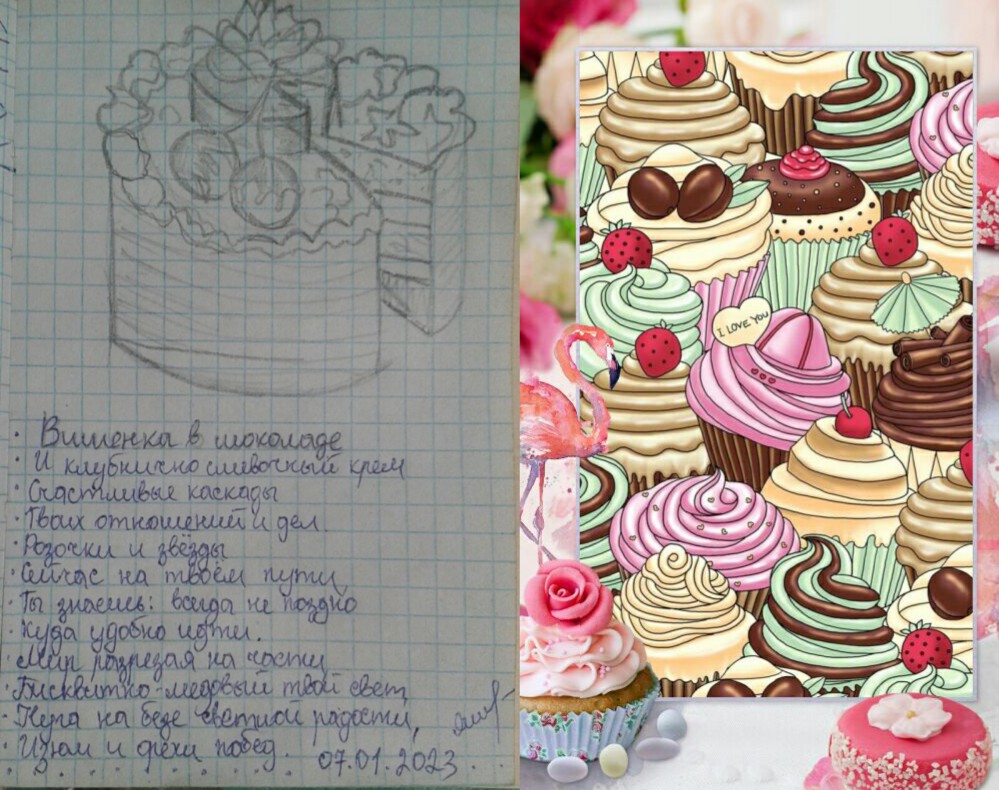 · Вишенка в шоколаде
· И клубнично сливочный крем
· Счастливые каскады
· Твоих отношений и дел.
· Розочки и звёзды
· Сейчас на твоём пути
· Ты знаешь: всегда не поздно
· Куда удобно идти.
· Мир разрезая на части,
· Бисквитно-медовый твой свет,
· Нуга на безе светлой радости,
· Изюм и орехи побед.
07.01.2023
I LOVE YOU